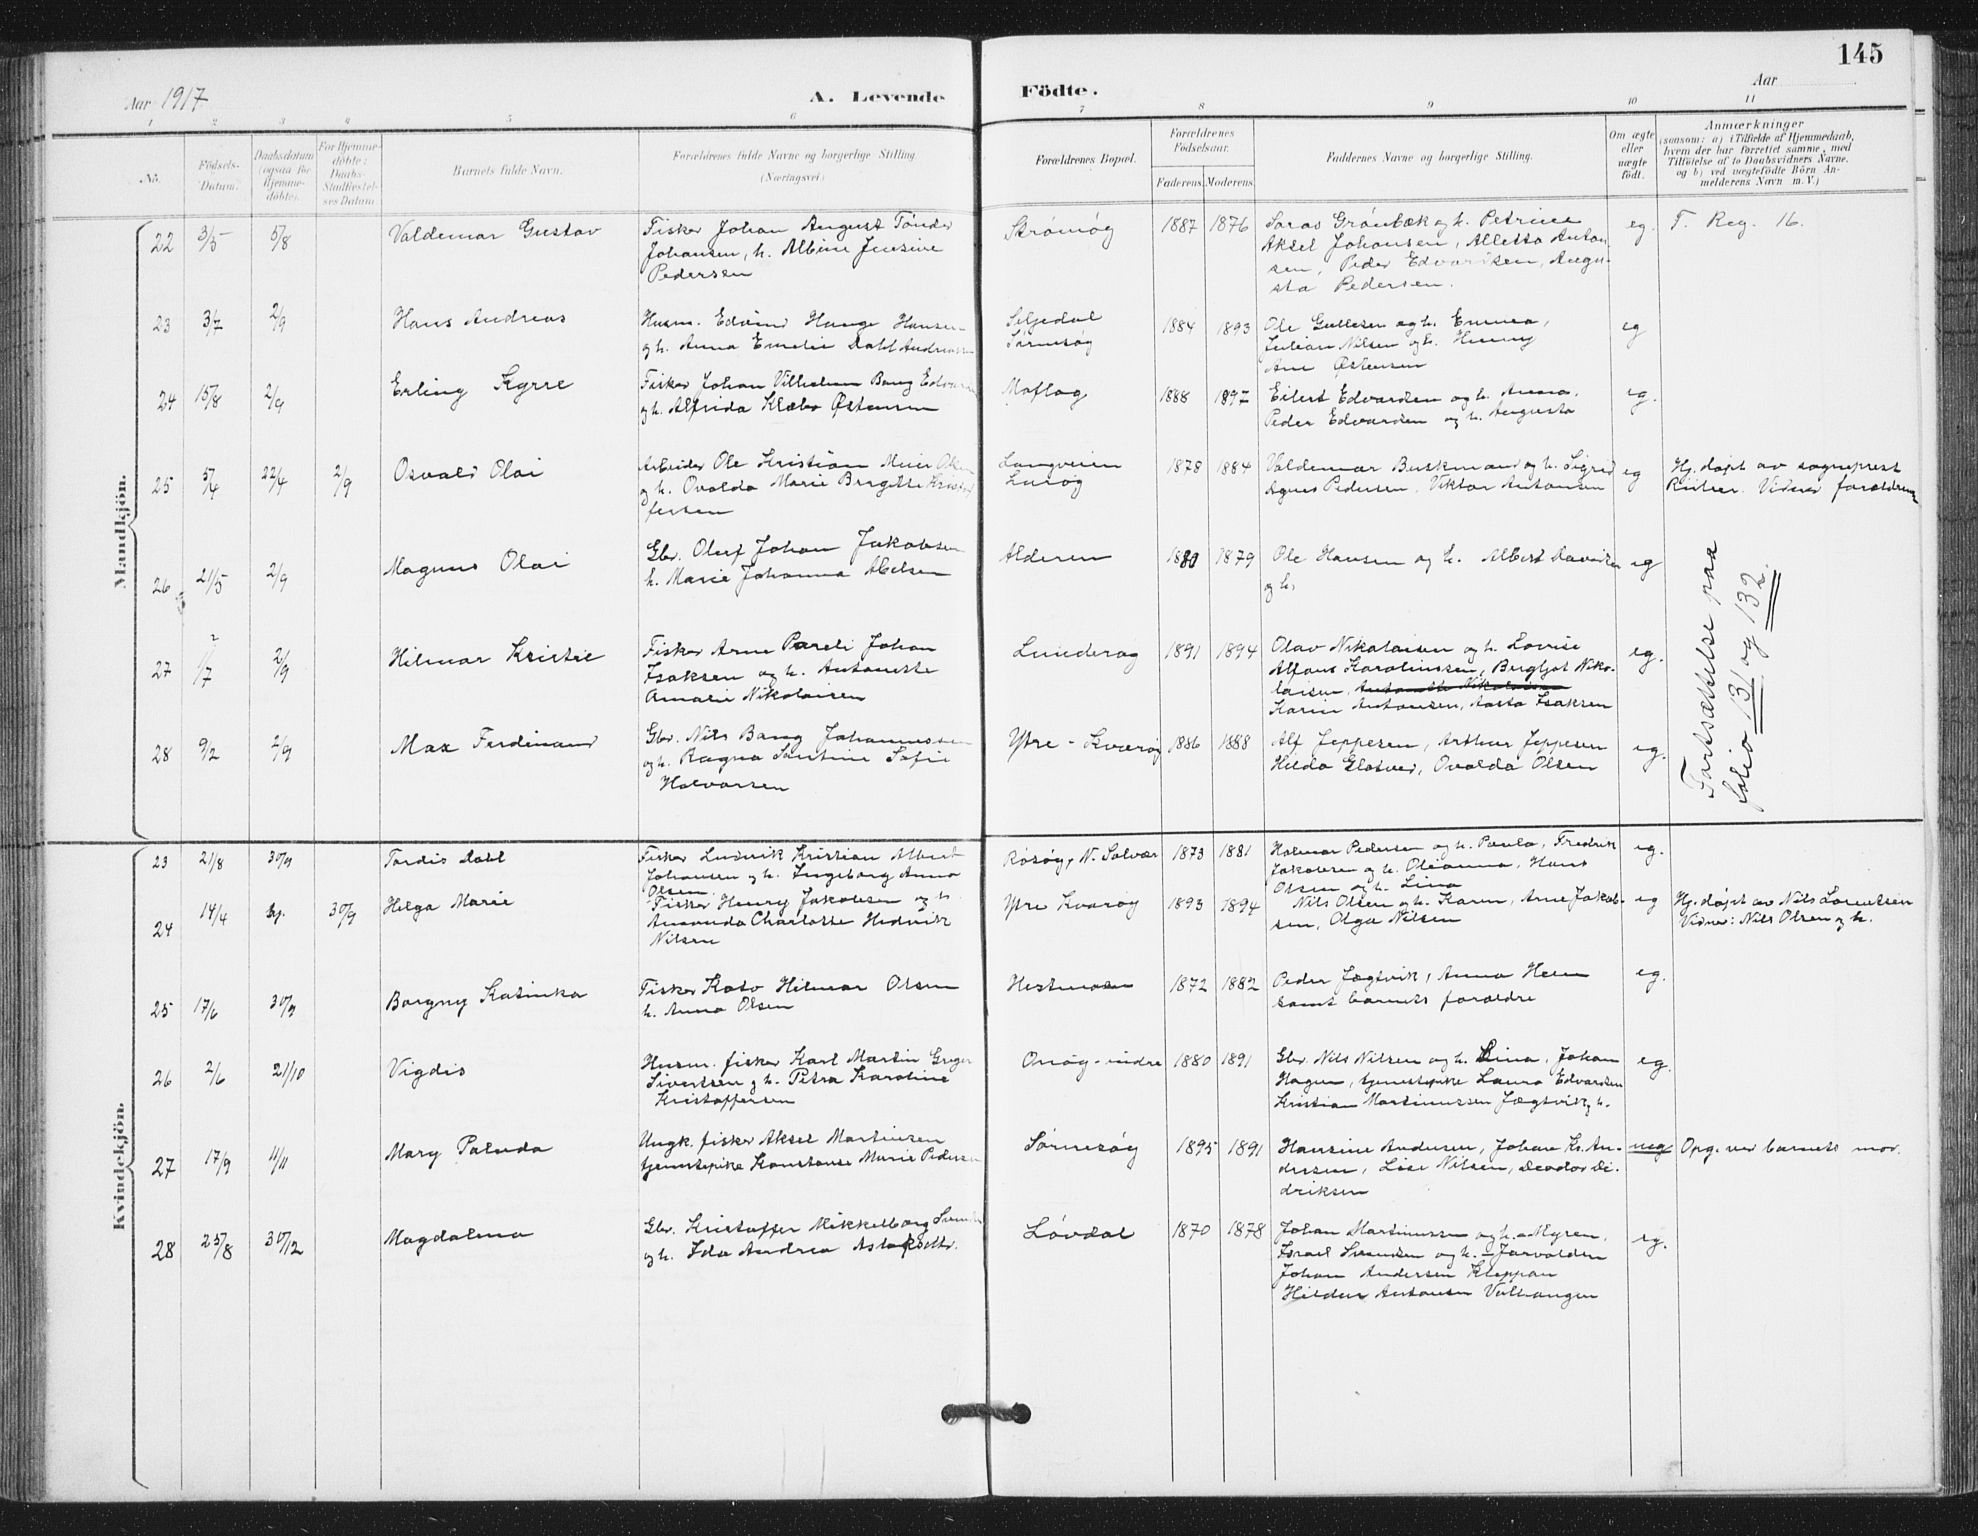 145
Aar 1917
A. Levende Födte.
Aar
1 2 3 4 5 6 7 8 9 10 11
No.
Födsels-
Datum.
Daabsdatum
(ogsaa for
Hjemme-
döbte).
For Hjemme-
döbte:
Daabs-
Stadfæstel-
ses Datum.
Barnets fulde Navn.
Forældrenes fulde Navne og borgerlige Stilling
(Næringsvei)
Forældrenes Bopæl.
Forældrenes
Födselsaar.
Faderens. Moderens.
Faddernes Navne og borgerlige Stilling.
Om ægte
eller
uægte
födt.
Anmærkninger
(saasom: a) i Tilfælde af Hjemmedaab,
hvem der har forrettet samme, med
Tilföielse af to Daabsvidners Navne.
og b) ved uægtefödte Börn An-
melderens Navn m. V.)
Mandkjön.
22 3/5 5/8 Valdemar Gustav
Fisker Johan August Tönder
Johansen, h. Albine Jensine
Pedersen
Strömöy 1887 1876
Saras Grönbæk og h. Petrine
Aksel Johansen, Alletta Anton-
sen, Peder Edvardsen, Augu-
sta Pedersen.
eg. T. Reg. 16.
23 3/7 2/9 Hans Andreas
Husm. Edvind Hauge Hansen
og h. Anna Emelie Dahl Andreassen
Seljedal
Sörnesöy
1884 1893
Ole Gullesen og h. Emma,
Julian Nilsen og h. Henny
Ane Østensen
eg
24 15/8 2/9 Erling Kyrre
Fisker Johan Vilhelm Bang Edvardsen
og h. Alfrida Klæbo Østensen
Moflag 1888 1897
Eilert Edvardsen og h. Anna,
Peder Edvardsen og h. Augusta
eg.
25 5/4 22/4 2/9 Osvald Olai
Arbeider Ole Kristian Meier Olsen
og h. Ovalda Marie Birgitte Kristof
fersen
Langveien
Luröy
1878 1884
Valdemar Buskmand og h. Sigrid
Agnes Pedersen, Viktor Antonsen
eg
Hj. døpt av sogneprest
Riiber. Vidner forældrene
26 21/5 2/9 Magnus Olai
Gbr. Oluf Johan Jakobsen
h. Marie Johanna Abelsen
Alderen 1880 1879
Ole Hansen og h. Albert Davidsen
og h.
eg
27 2/7 2/9 Hilmar Kristie
Fisker Arne Pareli Johan
Isaksen og h. Antonette
Amalie Nikolaisen
Lunderøy 1891 1894
Olav Nikolaisen og h. Lovise
Alfons Karolinssen, Bergljot Niko-
laisen, Antonette Nikolaisen
Karin Antonsen, Aasta Isaksen
eg.
28 9/2 2/9 Max Ferdinand
Gbr. Nils Bang Johannessen
og h. Ragna Santine Sofie
Halvorsen
Ytre - Kvaröy 1886 1888
Alf Jeppesen, Arthur Jeppesen
Hilda Elstver, Ovalda Olsen
eg.
Fortsættelse paa
folio 131 og 132.
Kvindekjön.
23 21/8 30/9 Tordis Dahl
Fisker Ludvik Kristian Albert
Johansen og h. Ingeborg Anna
Olsen
Rosøy, N. Solvær 1873 1881
Halmar Pedersen og h. Paula, Fredrik
Jakobsen og h. Oleanna, Hans
Olsen og h. Lina
eg.
24 14/4 hj. 30/9 Helga Marie
Fisker Henry Jakobsen og h.
Amanda Charlotte Hedevik
Nilsen
Ytre Kvaröy 1893 1894
Nils Olsen og h. Karen, Arne Jakob-
sen, Olga Nilsen
eg
Hj. døpt av Nils Lorentsen
Vidner: Nils Olsen og h.
25 17/6 30/9 Borgny Katinka
Fisker Kato Hilmar Olsen
h. Anna Olsen
Hestmoen 1872 1882
Peder Jægtvik, Anna Hem
samt barnets forældre
eg.
26 2/6 21/10 Vigdis
Husm. fisker Karl Martin Greger
Sivertsen og h. Petra Karoline
Kristoffersen
Onøy - indre 1880 1891
Gbr. Nils Nilsen og h. Lina, Johan
Hagen, tjenestepike Laura Edvardsen
Kristian Martinussen Jægtvik og h.
eg.
27 17/9 11/11 Mary Paluda
Ungk. fisker Aksel Martinsen
tjenestepike Konstanse Marie Pedersen
Sørnesøy 1895 1891
Hansine Andersen, Johan Kr. An-
dersen, Lise Nilsen, Deodor Di-
driksen
ueg Opg. ver barnets mor.
28 25/8 30/12 Magdalena
Gbr. Kristoffer Mikkelborg Svendsen
og h. Ida Andrea Astaksdtr.
Løvdal 1870 1878
Johan Martinussen og h. - Myren,
Israel Svendsen og h. - Jarvolden
Johan Andersen Kleppan
Hildur Antonsen Valhaugen
eg.